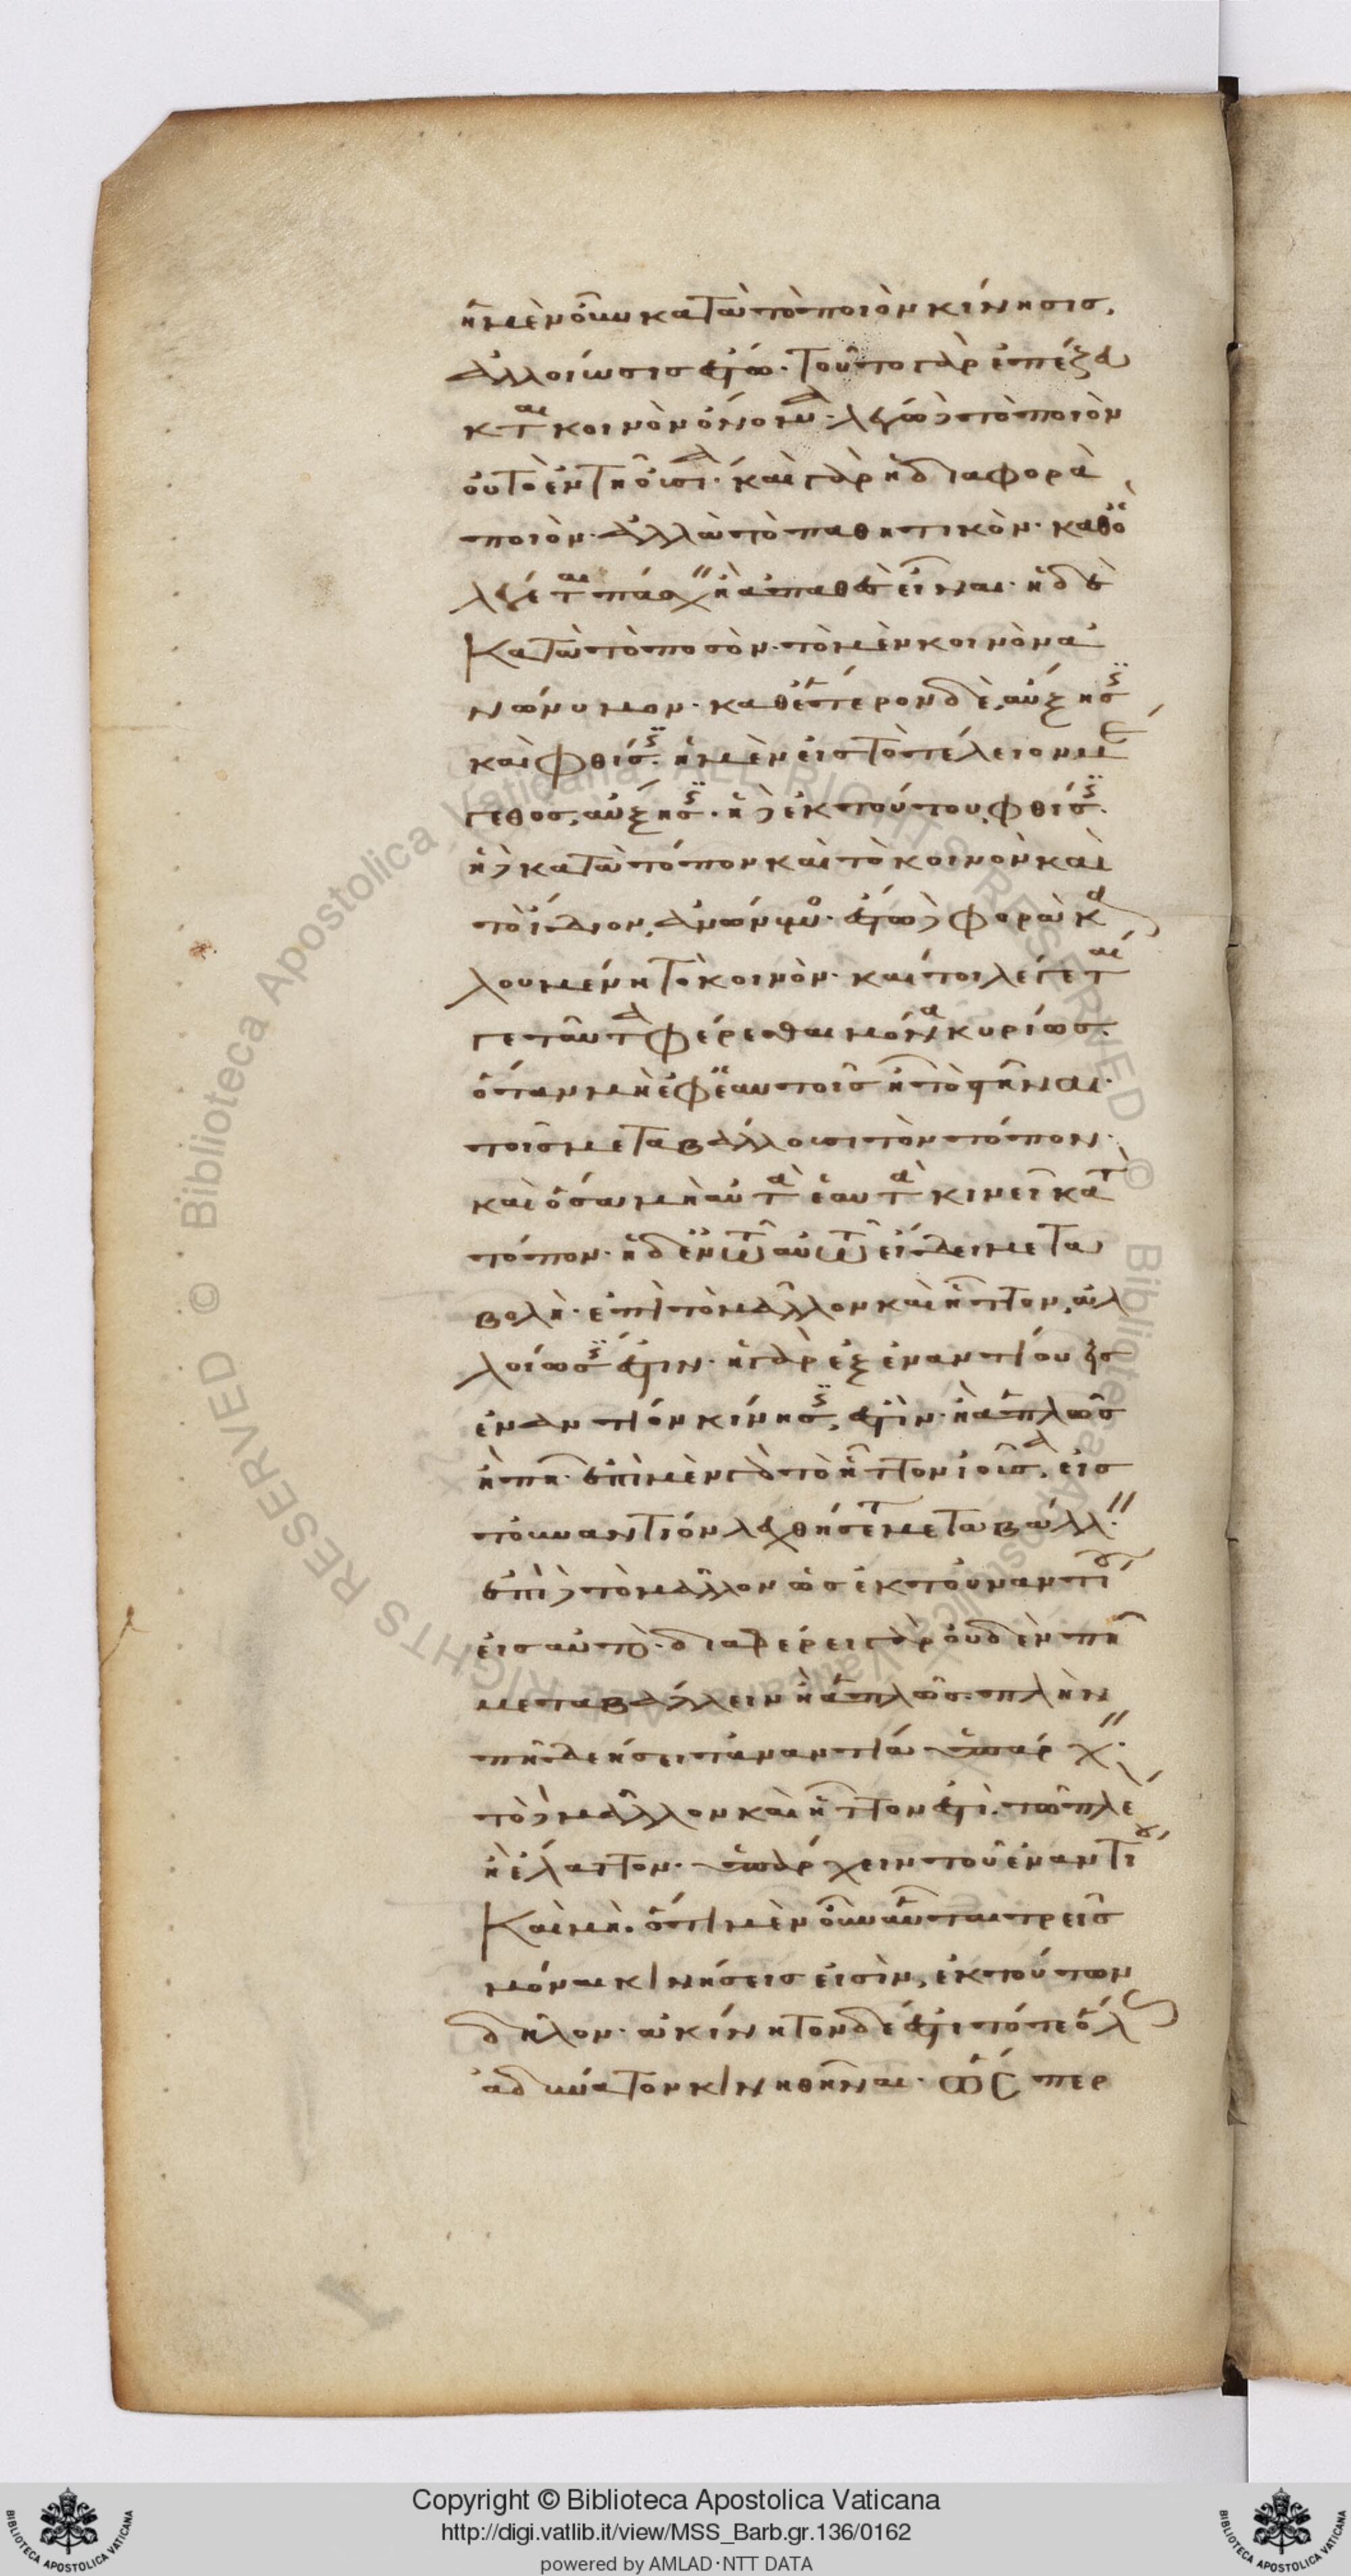 ἡ μὲν οὖν κατὰ τὸ ποιὸν κίνησις,
ἀλλοίωσις ἔστω· τοῦτο γὰρ ἐπέζευ
κται κοινὸν ὄνομα· λέγω δὲ τὸ ποιὸν
οὐ τὸ ἐν τῇ οὐσίᾳ· καὶ γὰρ ἡ διαφορὰ
ποιόν· ἀλλὰ τὸ παθητικὸν· καθ' ὃ
λέγεται πάσχειν ἢ ἀπαθὲς εἶναι· ἡ δὲ
κατὰ τὸ ποσὸν· τὸ μὲν κοινὸν ἀ
νώνυμον· καθ' ἑκάτερον δὲ, αὔξησις
καὶ φθίσις· ἡ μὲν εἰς τὸ τέλειον μέ
γεθος, αὔξησις· ἡ δὲ ἐκ τούτου, φθίσις·
ἡ δὲ κατὰ τόπον καὶ τὸ κοινὸν καὶ
τὸ ἴδιον, ἀνώνυμος· ἔστω δὲ φορὰ κα
λουμένη τὸ κοινὸν· καί τοι λέγεται
γε ταῦτα φέρεσθαι μόνα κυρίως·
ὅταν μὴ ἐφ' ἑαυτοῖς ᾖ τὸ στῆναι·
τοῖς μεταβάλλουσι τὸν τόπον·
καὶ ὅσα μὴ αὐτὰ ἑαυτὰ κινεῖ κατὰ
τόπον· ἡ δ' ἐν τῷ αὐτῷ εἴδει μετα
βολὴ· ἐπὶ τὸ μᾶλλον καὶ ἧττον, ἀλ
λοίωσις ἐστιν· ἡ γὰρ ἐξ ἐναντίου ἢ εἰς
ἐναντίον κίνησις, ἐστὶν· ἢ ἁπλῶς
ἢ πῇ· ἐπὶ μὲν γὰρ τὸ ἧττον ἰοῦσα, εἰς
τοὐναντίον λεχθήσεται μεταβάλλειν·
ἐπὶ δὲ τὸ μᾶλλον ὡς ἐκ τοὐναντίου
εἰς αὐτὸ· διαφέρει γὰρ οὐδὲν πῇ
μεταβάλλειν ἢ ἁπλῶς· πλὴν
πῇ δεήσει τἀναντία ὑπάρχειν·
τὸ δὲ μᾶλλον καὶ ἧττον ἐστὶ· τῷ πλέ
ἢ ἔλαττον· ὑπάρχειν τοῦ ἐναντίου
καὶ μὴ. ὅτι μὲν οὖν αὗται τρεῖς
μόναι κινήσεις εἰσὶν, ἐκ τούτων
δῆλον· ἀκίνητον δέ ἐστι τό τε ὅλως
ἀδύνατον κινηθῆναι· ὥσπερ
Copyright © Biblioteca Apostolica Vaticana
http://digi.vatlib.it/view/MSS_Barb.gr.136/0162
powered by AMLAD·NTT DATA